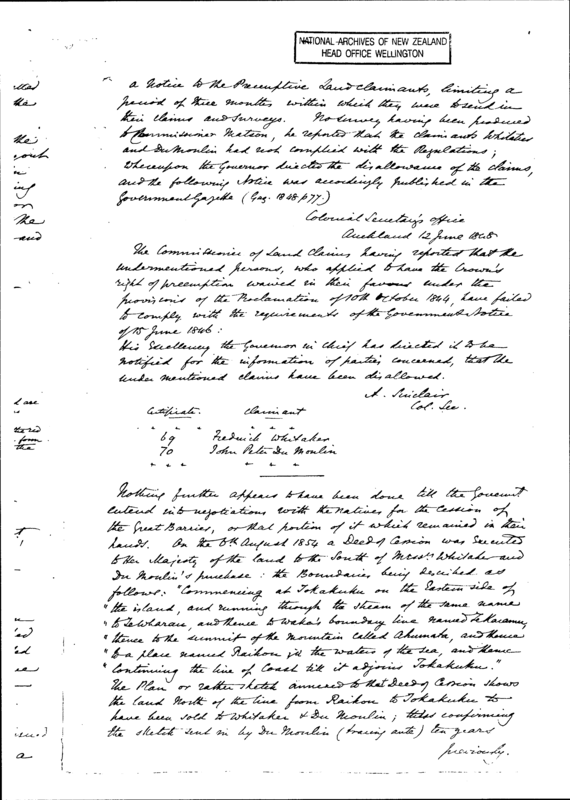 NATIONAL ARCHIVES OF NEW ZEALAND
HEAD OFFICE WELLINGTON
a Notice to the Preemptive Land claimants, limiting a
period of three months within which they were to send in
their claims and surveys. No survey having been produced
to Commissioner Matson, he reported that the claimants Whitaker
and Du Moulin had not complied with the Regulations;
whereupon the Governor directed the disallowance of the claims,
and the following Notice was accordingly published in the
Government Gazette (Gaz. 1848 p77.)
Colonial Secretary's Office
Auckland 12 June 1848
The Commissioner of Land Claims having reported that the
undermentioned persons, who applied to have the Crown's
right of preemption waived in their favour under the
provisions of the Proclamation of 10th October 1844, have failed
to comply with the requirements of the Government Notice
of 15 June 1846:
His Excellency the Governor in Chief has directed it to be
notified for the information of parties concerned, that the
under mentioned claims have been disallowed.
A. Sinclair
Col. Sec.
Certificate. Claimant
" " " " " "
69 Fredrick Whitaker
70 John Peter Du Moulin
" " " " " "
Nothing further appears to have been done till the Governmt
entered into negotiations with the Natives for the Cession of
the Great Barrier, or that portion of it which remained in their
hands. On the August 1854 a Deed of Cession was executed
to Her Majesty of the land to the South of Messrs. Whitaker and
Du Moulin's purchase: the Boundaries being described as
follows: "Commencing at Tokakuku on the Eastern side of
" the island, and running through the stream of the same name
" to Te Wharau, and thence to Waka's boundary line named
" thence to the summit of the mountain called Ahumata, and thence
" to a place named Raikou in the waters of the sea, and thence
" Continuing the line of Coast till it adjoins Tokakuku."
The Plan or rather sketch annexed to that Deed of Cession shows
the land North of the line from Raikou to Tokakuku to
have been sold to Whitaker & Du Moulin; thus confirming
the sketch sent in by Du Moulin (tracing ante) ten years
previously.
the
the
ing
or
the
and
are
form
the
a